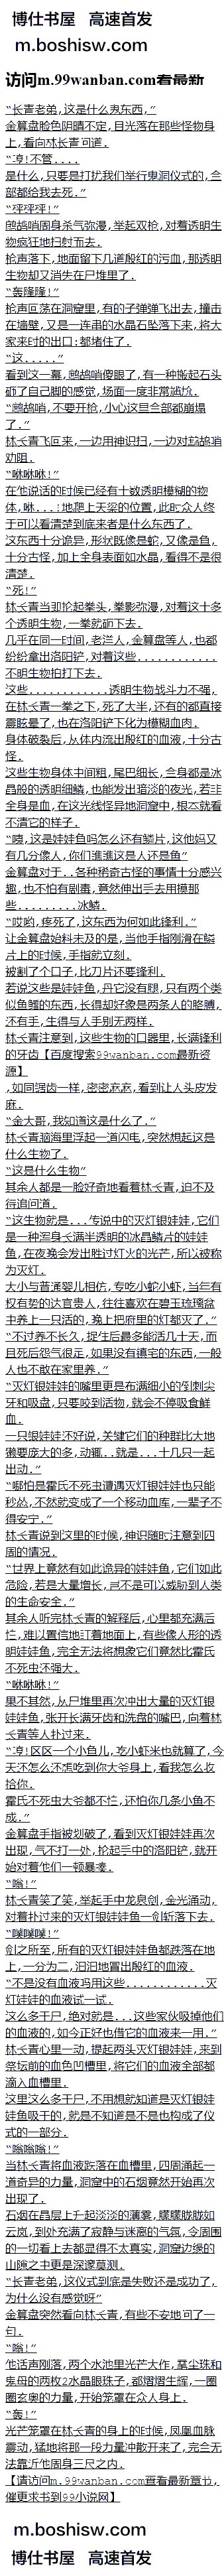 博仕书屋 高速首发
m.boshisw.com
访问m.99wanban.com看最新
“长青老弟,这是什么鬼东西,”
金算盘脸色阴晴不定,目光落在那些怪物身
上,看向林长青问道.
“哼!不管....
是什么,只要是打扰我们举行鬼洞仪式的,全
部都给我去死.”
“砰砰砰!”
鹧鸪哨周身杀气弥漫,举起双枪,对着透明生
物疯狂地扫射而去.
枪声落下,地面留下几道殷红的污血,那透明
生物却又消失在尸堆里了.
“轰隆隆!”
枪声回荡在洞窟里,有的子弹弹飞出去,撞击
在墙壁,又是一连串的水晶石坠落下来,将大
家来时的出口:都堵住了.
“这.....”
看到这一幕,鹧鸪哨傻眼了,有一种搬起石头
砸了自己脚的感觉,场面一度非常尴尬.
“鹧鸪哨,不要开枪,小心这里全部都崩塌
了.”
林长青飞回来,一边用神识扫,一边对鹧鸪哨
劝阻.
“咻咻咻!”
在他说话的时候已经有十数透明模糊的物
体,咻...!地爬上天梁的位置,此时众人终
于可以看清楚到底来者是什么东西了.
这东西十分诡异,形状既像是蛇,又像是鱼,
十分古怪,加上全身表面如水晶,看得不是很
清楚.
“死!”
林长青当即抡起拳头,拳影弥漫,对着这十多
个透明生物,一拳就砸下去.
几乎在同一时间,老洋人,金算盘等人,也都
纷纷拿出洛阳铲,对着这些............
不明生物拍打下去.
这些............透明生物战斗力不强,
在林长青一拳之下,死了大半,还有的都直接
震眩晕了,也在洛阳铲下化为模糊血肉.
身体破裂后,从体内流出殷红的血液,十分古
怪.
这些生物身体中间粗,尾巴细长,全身都是冰
晶般的透明细鳞,也能发出暗淡的夜光,若非
全身是血,在这光线怪异地洞窟中,根本就看
不清它的样子.
“咦,这是娃娃鱼吗怎么还有鳞片,这他妈又
有几分像人,你们瞧瞧这是人还是鱼”
金算盘对于..各种稀奇古怪的事情十分感兴
趣,也不怕有剧毒,竟然伸出手去用摸那
些.........冰鳞.
“哎哟,疼死了,这东西为何如此锋利.”
让金算盘始料未及的是,当他手指刚滑在鳞
片上的时候,手指就立刻.
被割了个口子,比刀片还要锋利.
若说这些是娃娃鱼,丹它没有腿,只有两个类
似鱼鳍的东西,长得却好象是两条人的胳膊,
还有手,生得与人手别无两样.
林长青注意到,这些生物的口器里,长满锋利
的牙齿【百度搜索99wanban.com最新资
源】
,如同强齿一样,密密麻麻,看到让人头皮发
麻.
“金大哥,我知道这是什么了.”
林长青脑海里浮起一道闪电,突然想起这是
什么生物了.
“这是什么生物”
其余人都是一脸好奇地看着林长青,迫不及
待追问道.
“这生物就是...传说中的灭灯银娃娃,它们
是一种浑身长满半透明的冰晶鳞片的娃娃
鱼,在夜晚会发出胜过灯火的光芒,所以被称
为灭灯.
大小与普通婴儿相仿,专吃小蛇小虾,当年有
权有势的达官贵人,往往喜欢在碧玉琉璃盆
中养上一只活的,晚上把府里的灯都灭了.”
“不过养不长久,捉生后最多能活几十天,而
且死后怨气很足,如果没有镇宅的东西,一般
人也不敢在家里养.”
“灭灯银娃娃的嘴里更是布满细小的倒刺尖
牙和吸盘,只要咬到活物,就会不停吸食鲜
血.
一只银娃娃还好说,关键它们的种群比大地
獭要庞大的多,动辄..就是...十几只一起
出动.”
“哪怕是霍氏不死虫遭遇灭灯银娃娃也只能
秒怂,不然就变成了一个移动血库,一辈子不
得安宁.”
林长青说到这里的时候,神识随时注意到四
周的情况.
“世界上竟然有如此诡异的娃娃鱼,它们如此
危险,若是大量增长,岂不是可以威胁到人类
的生命安全.”
其余人听完林长青的解释后,心里都充满后
怕,难以置信地盯着地面上,有些像人形的透
明娃娃鱼,完全无法将想象它们竟然比霍氏
不死虫还强大.
“咻咻咻!”
果不其然,从尸堆里再次冲出大量的灭灯银
娃娃鱼,张开长满牙齿和洗盘的嘴巴,向着林
长青等人扑过来.
“哼!区区一个小鱼儿,吃小虾米也就算了,今
天还怎么还想吃到你大爷身上,看我怎么收
拾你.
霍氏不死虫大爷都不怕,还怕你几条小鱼不
成.”
金算盘手指被划破了,看到灭灯银娃娃再次
出现,气不打一处,抡起手中的洛阳铲,就开
始对着他们一顿暴凑.
“嗡!”
林长青笑了笑,举起手中龙泉剑,金光涌动,
对着扑过来的灭灯银娃娃鱼一剑斩落下去.
“噗噗噗!”
剑之所至,所有的灭灯银娃娃鱼都跌落在地
上,一分为二,汩汩地冒出殷红的血液.
“不是没有血液吗用这些............灭
灯娃娃的血液试一试.
这么多干尸,绝对就是...这些家伙吸掉他们
的血液的,如今正好也借它的血液来一用.”
林长青心里一动,提起两头灭灯银娃娃,来到
祭坛前的血色凹槽里,将它们的血液全部都
滴入血槽里.
这里这么多干尸,不用想就知道是灭灯银娃
娃鱼吸干的,就是不知道是不是也构成了仪
式的一部分.
“嗡嗡嗡!”
当林长青将血液跌落在血槽里,四周涌起一
道奇异的力量,洞窟中的石烟竟然开始再次
出现了.
石烟在晶层上升起淡淡的薄雾,朦朦胧胧如
云岚,到处充满了寂静与迷离的气氛,令周围
的一切看上去都显得不太真实,洞窟边缘的
山隙之中更是深邃莫测.
“长青老弟,这仪式到底是失败还是成功了,
为什么没有感觉呀”
金算盘突然看向林长青,有些不安地问了一
句.
“嗡!”
他话声刚落,两个水池里光芒大作,雮尘珠和
鬼母的两枚2水晶眼珠子,都熠熠生辉,一圈
圈玄奥的力量,开始笼罩在众人身上.
“轰!”
光芒笼罩在林长青的身上的时候,凤凰血脉
震动,猛地将那一段力量冲散开来了,完全无
法靠近他周身三尺之内.
【请访问m.99wanban.com查看最新章节,
催更求书到99小说网】
m.boshisw.com
博仕书屋 高速首发